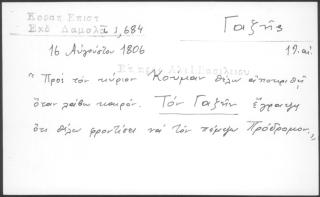 Κοραη Επιστ
Εκδ Δαμαλᾶ 1,684
Γαζῆς
16 Αὐγούστου 1806
19. αἰ.
"Πρὸς τὸν κύριον Κουμαν θέλω ἀποκριθῆ
ὅταν λάβω καιρόν. Τὸν Γαζῆν ἔγραψα
ὅτι θέλω φροντίσει νὰ τὸν πέμψω Πρόδρομον"